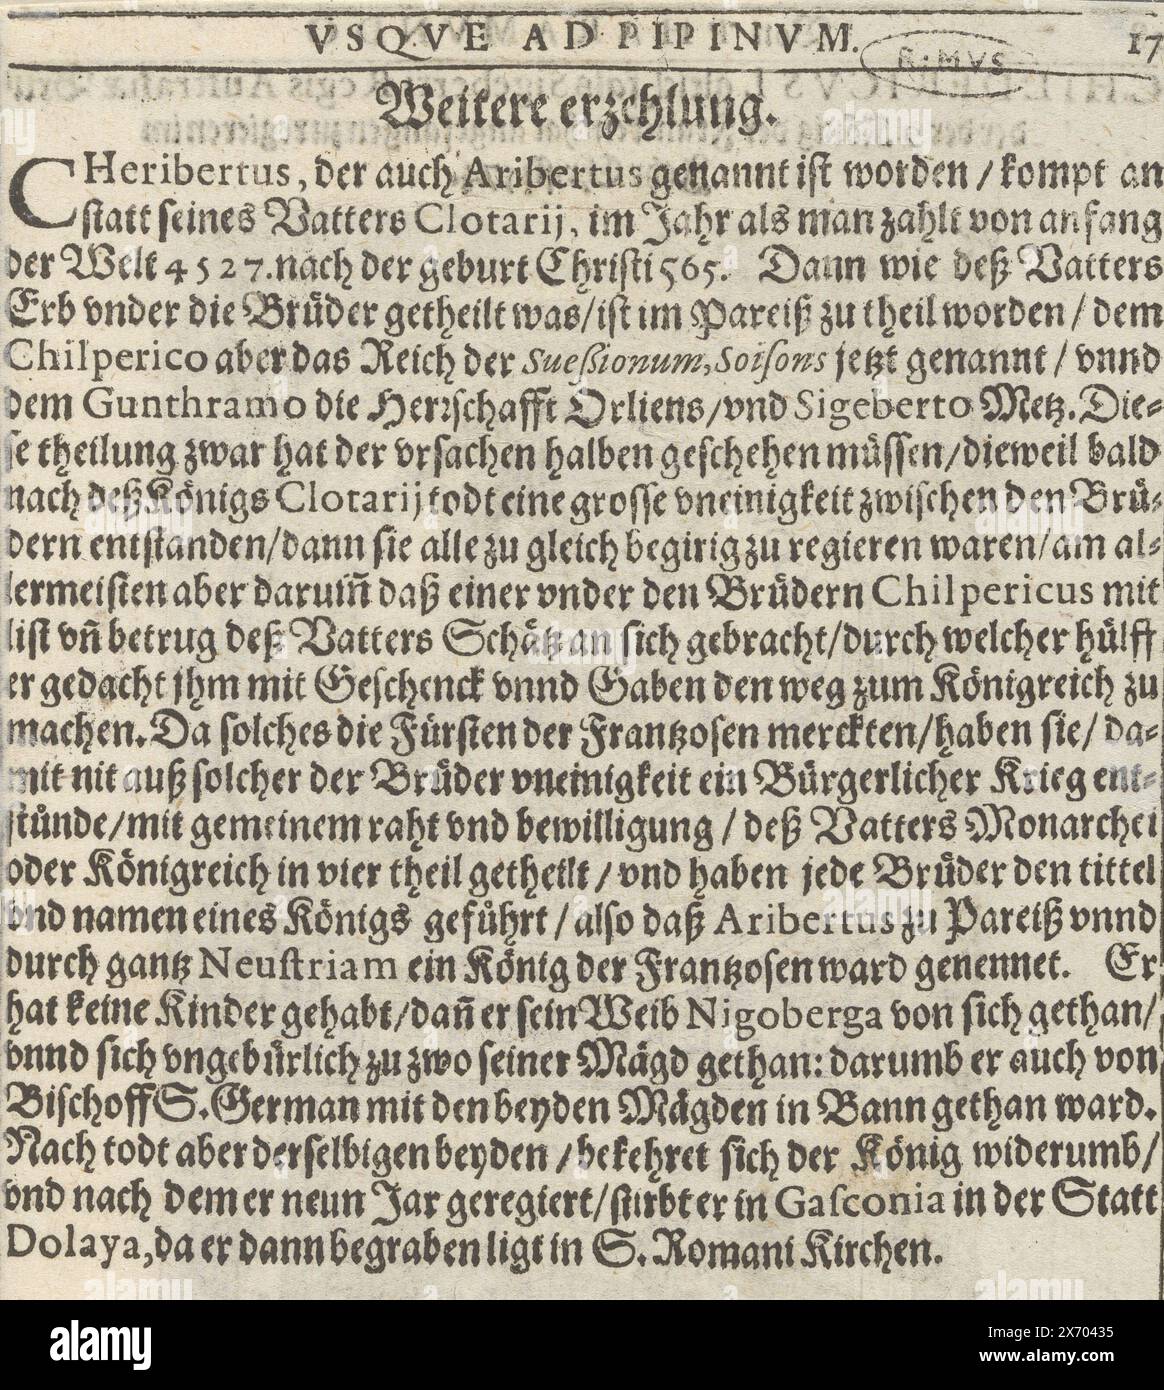 VSQVE AD PIPINVM. 17
R: MVS
Weitere erzehlung.
CHeribertus, der auch Aribertus genannt ist worden / kompt an
statt seines Vatters Clotarij, im Jahr als man zahlt von anfang
der Welt 4527. nach der geburt Christi 565. Dann wie deß Vatters
Erb vnder die Brüder getheilt was / ist im Pareiß zu theil worden / dem
Chilperico aber das Reich der Sueßionum, Soisons jetzt genannt / vnnd
dem Gunthramo die Herrschafft Orliens / vnd Sigeberto Metz. Die-
se theilung zwar hat der vrsachen halben geschehen müssen / dieweil bald
nach deß Königs Clotarij todt eine grosse vneinigkeit zwischen den Brü-
dern entstanden / dann sie alle zu gleich begirig zu regieren waren / am al-
lermeisten aber darum̃ daß einer vnder den Brüdern Chilpericus mit
list vñ betrug deß Vatters Schätz an sich gebracht / durch welcher hülff
er gedacht jhm mit Geschenck vnnd Gaben den weg zum Königreich zu
machen. Da solches die Fürsten der Frantzosen merckten / haben sie / da-
mit nit auß solcher der Brüder vneinigkeit ein Bürgerlicher Krieg ent-
stünde / mit gemeinem raht vnd bewilligung / deß Vatters Monarchei
oder Königreich in vier theil getheilt / vnd haben jede Brüder den tittel
vnd namen eines Königs geführt / also daß Aribertus zu Pareiß vnnd
durch gantz Neustriam ein König der Frantzosen ward genennet. Er
hat keine Kinder gehabt / dañ er sein Weib Nigoberga von sich gethan /
vnnd sich vngebürlich zu zwo seiner Mägd gethan: darumb er auch von
Bischoff S. German mit den beyden Mägden in Bann gethan ward.
Nach todt aber derselbigen beyden / bekehret sich der König widerumb /
vnd nach dem er neun Jar geregiert / stirbt er in Gasconia in der Statt
Dolaya, da er dann begraben ligt in S. Romani Kirchen.
alamy
Image ID: 2X70435
www.alamy.com